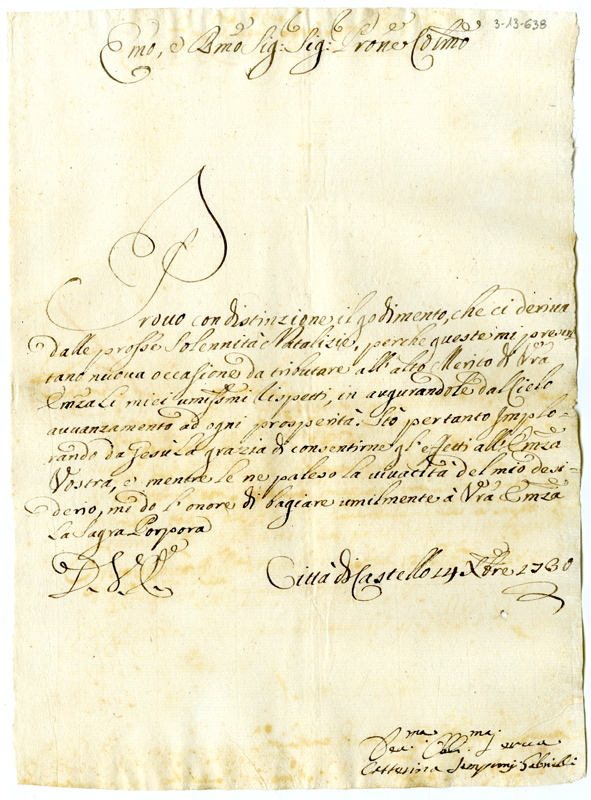 3-13-638
Emo, e Rmo Sig: Sig: Prone Colmo
Provo con distinzione il godimento, che ci deriva
dalle prosse Solennità Natalizie, perche queste mi presen
tano nuova occasione da tributare all'alto Merito di Vra
Emza li miei umissmi rispetti, in augurandole dal Cielo
avvanzamento ad ogni prosperità. Stò pertanto Implo-
rando da Gesù la grazia di consentirne gl'effetti all'Emza
Vostra, e mentre le ne paleso la vivacità del mio desi-
derio, mi do l'onore di bagiare umilmente à Vra Emza
la Sagra Porpora
D. V. E.
Città di Castello 14 Xbre 1730
Dev.ma Obb.ma Serva
Catterina Sempronj Gabrielli